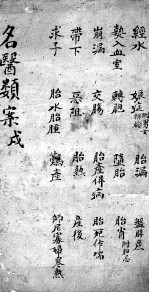 經水 娠症 胎漏 產
熱入血室 轉胞 墮胎 胎
崩漏 交腸 胎產得病 胎死作喘
帶下 惡阻 胎熱 產後
求子 胎水胎腫 產 師尼寡婦寒熱
名醫類案戌